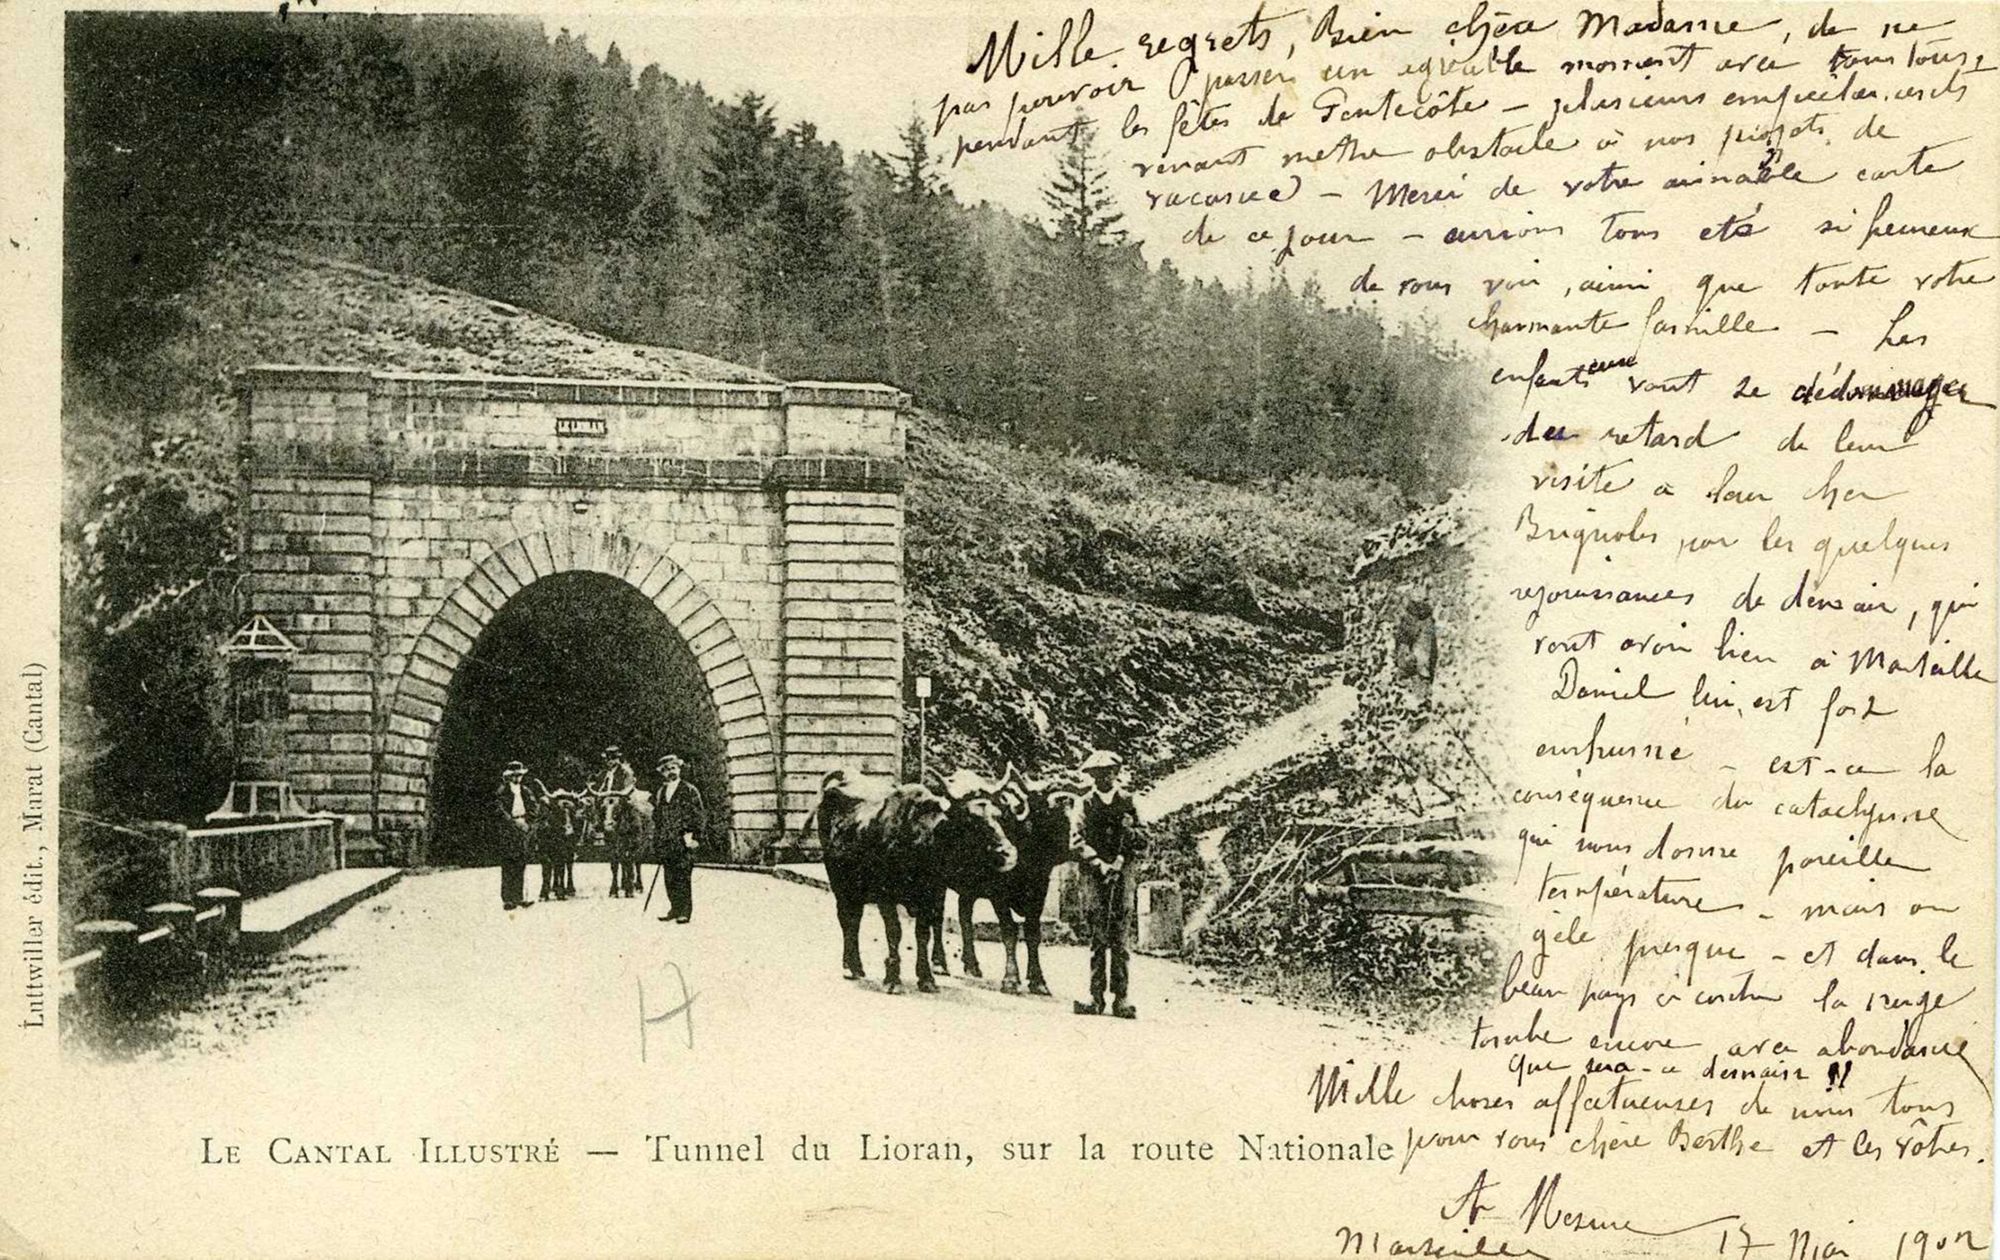 Mille regrets, Bien chère Madame, de ne
pas pouvoir passer un agréable moment avec vous tous,
pendant les fêtes de Pentecôte – plusieurs
venant mettre obstacle à nos projets de
vacance – Merci de votre aimable carte
de ce jour – aurions tous été si heureux
de vous voir, ainsi que toute votre
charmante famille – Les
enfants eux vont se dédommager
du retard de leur
visite a leur cher
Brignoles par les quelques
rejouissances de demain, qui
vont avoir lieu à Marseille
Daniel lui, est fort
enrhumé – est-ce la
conséquence du cataclysme
qui nous donne pareille
température – mais on
gèle presque – et dans le
beau pays la neige
tombe encore avec abondance
que sera-ce demain !!
Mille choses affectueuses de nous tous
pour vous chère Berthe et les vôtres.
Marseille 17 Mai 1902
H
Le Cantal Illustré — Tunnel du Lioran, sur la route Nationale
Luttwiller édit., Marat (Cantal)